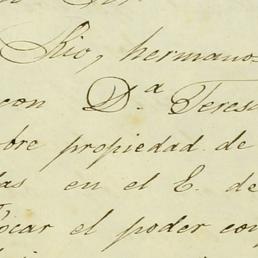 Rio, hermanos
con D.ª Teres
bre propiedad de
das en el E. de
ocar el poder con